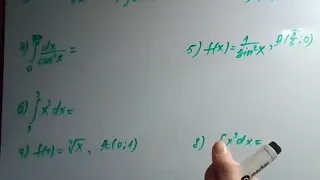 4) ∫ dx/cos²x =
5) f(x) = 1/sin²x, A(π/2; 0)
6) ∫ x³dx =
7) f(x) = √x, A(0; 1)
8) ∫ x³dx =